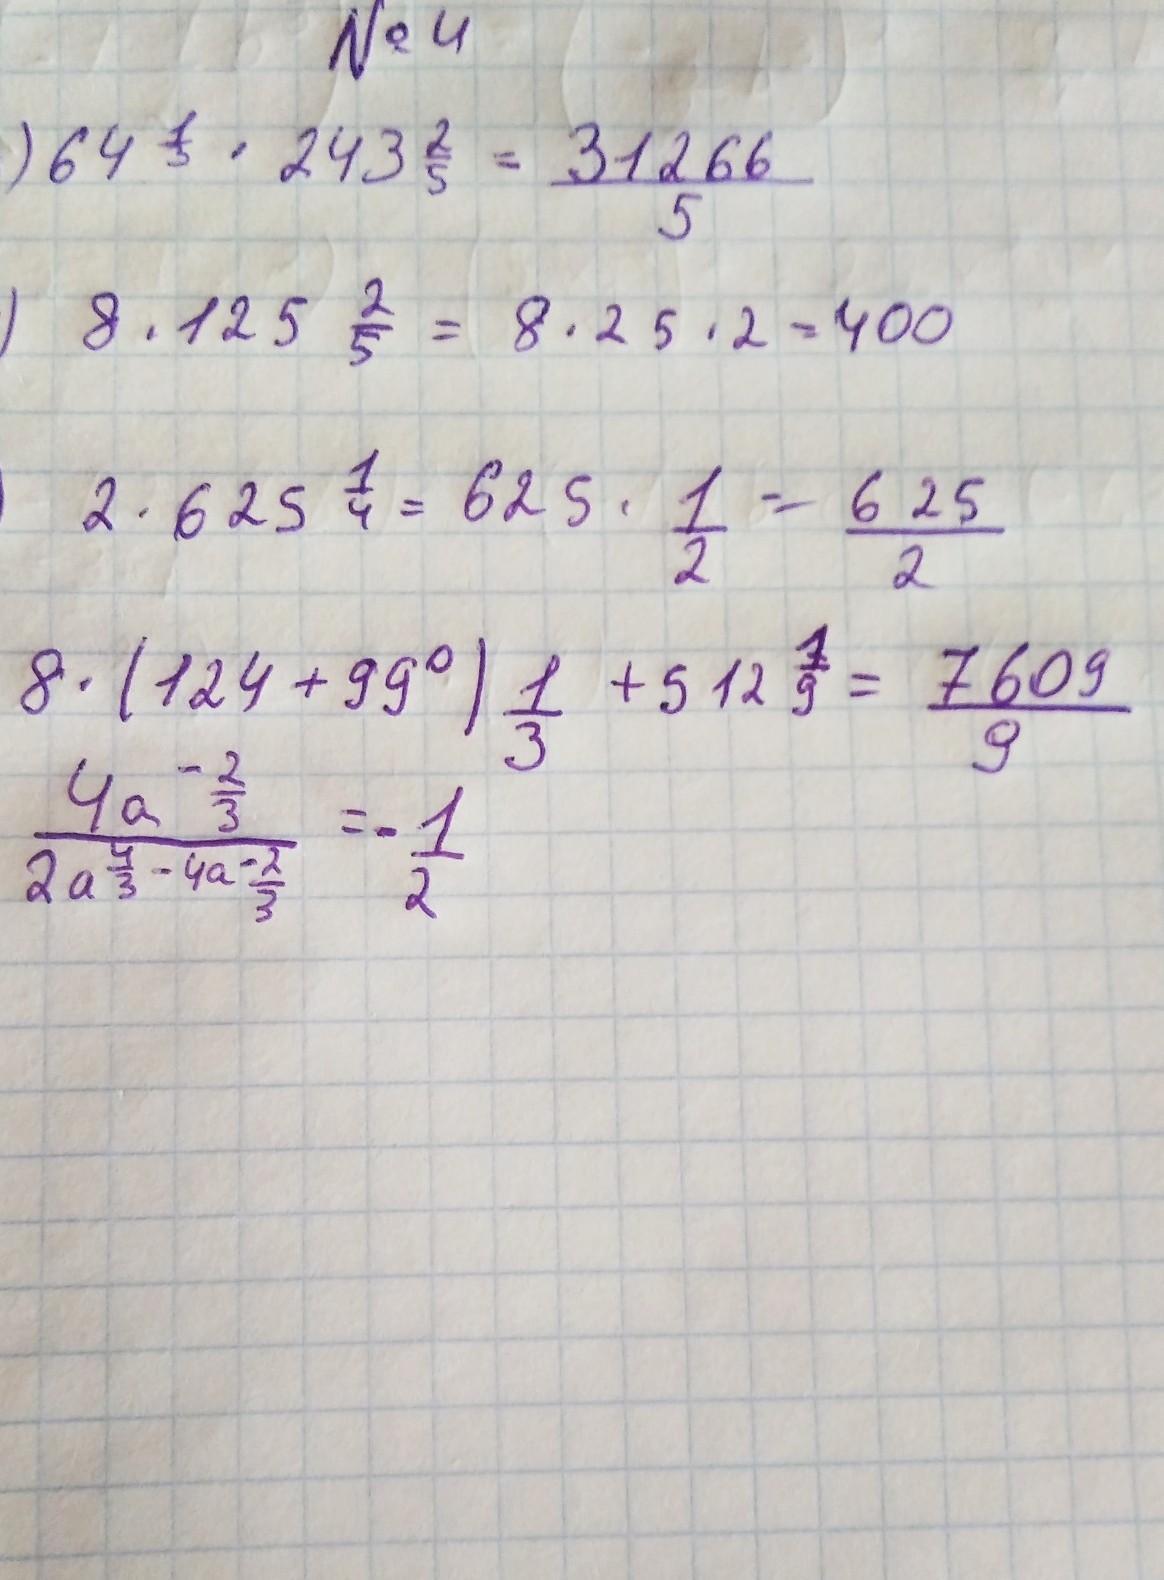 № 4
) 64 1/3 · 243 2/5 = 31266/5
) 8 · 125 2/5 = 8 · 25 · 2 = 400
) 2 · 625 1/4 = 625 · 1/2 = 625/2
8 · (124 + 99⁰) 1/3 + 512 1/9 = 7609/9
4a^(-2/3) / (2a^(4/3) - 4a^(-2/3)) = -1/2